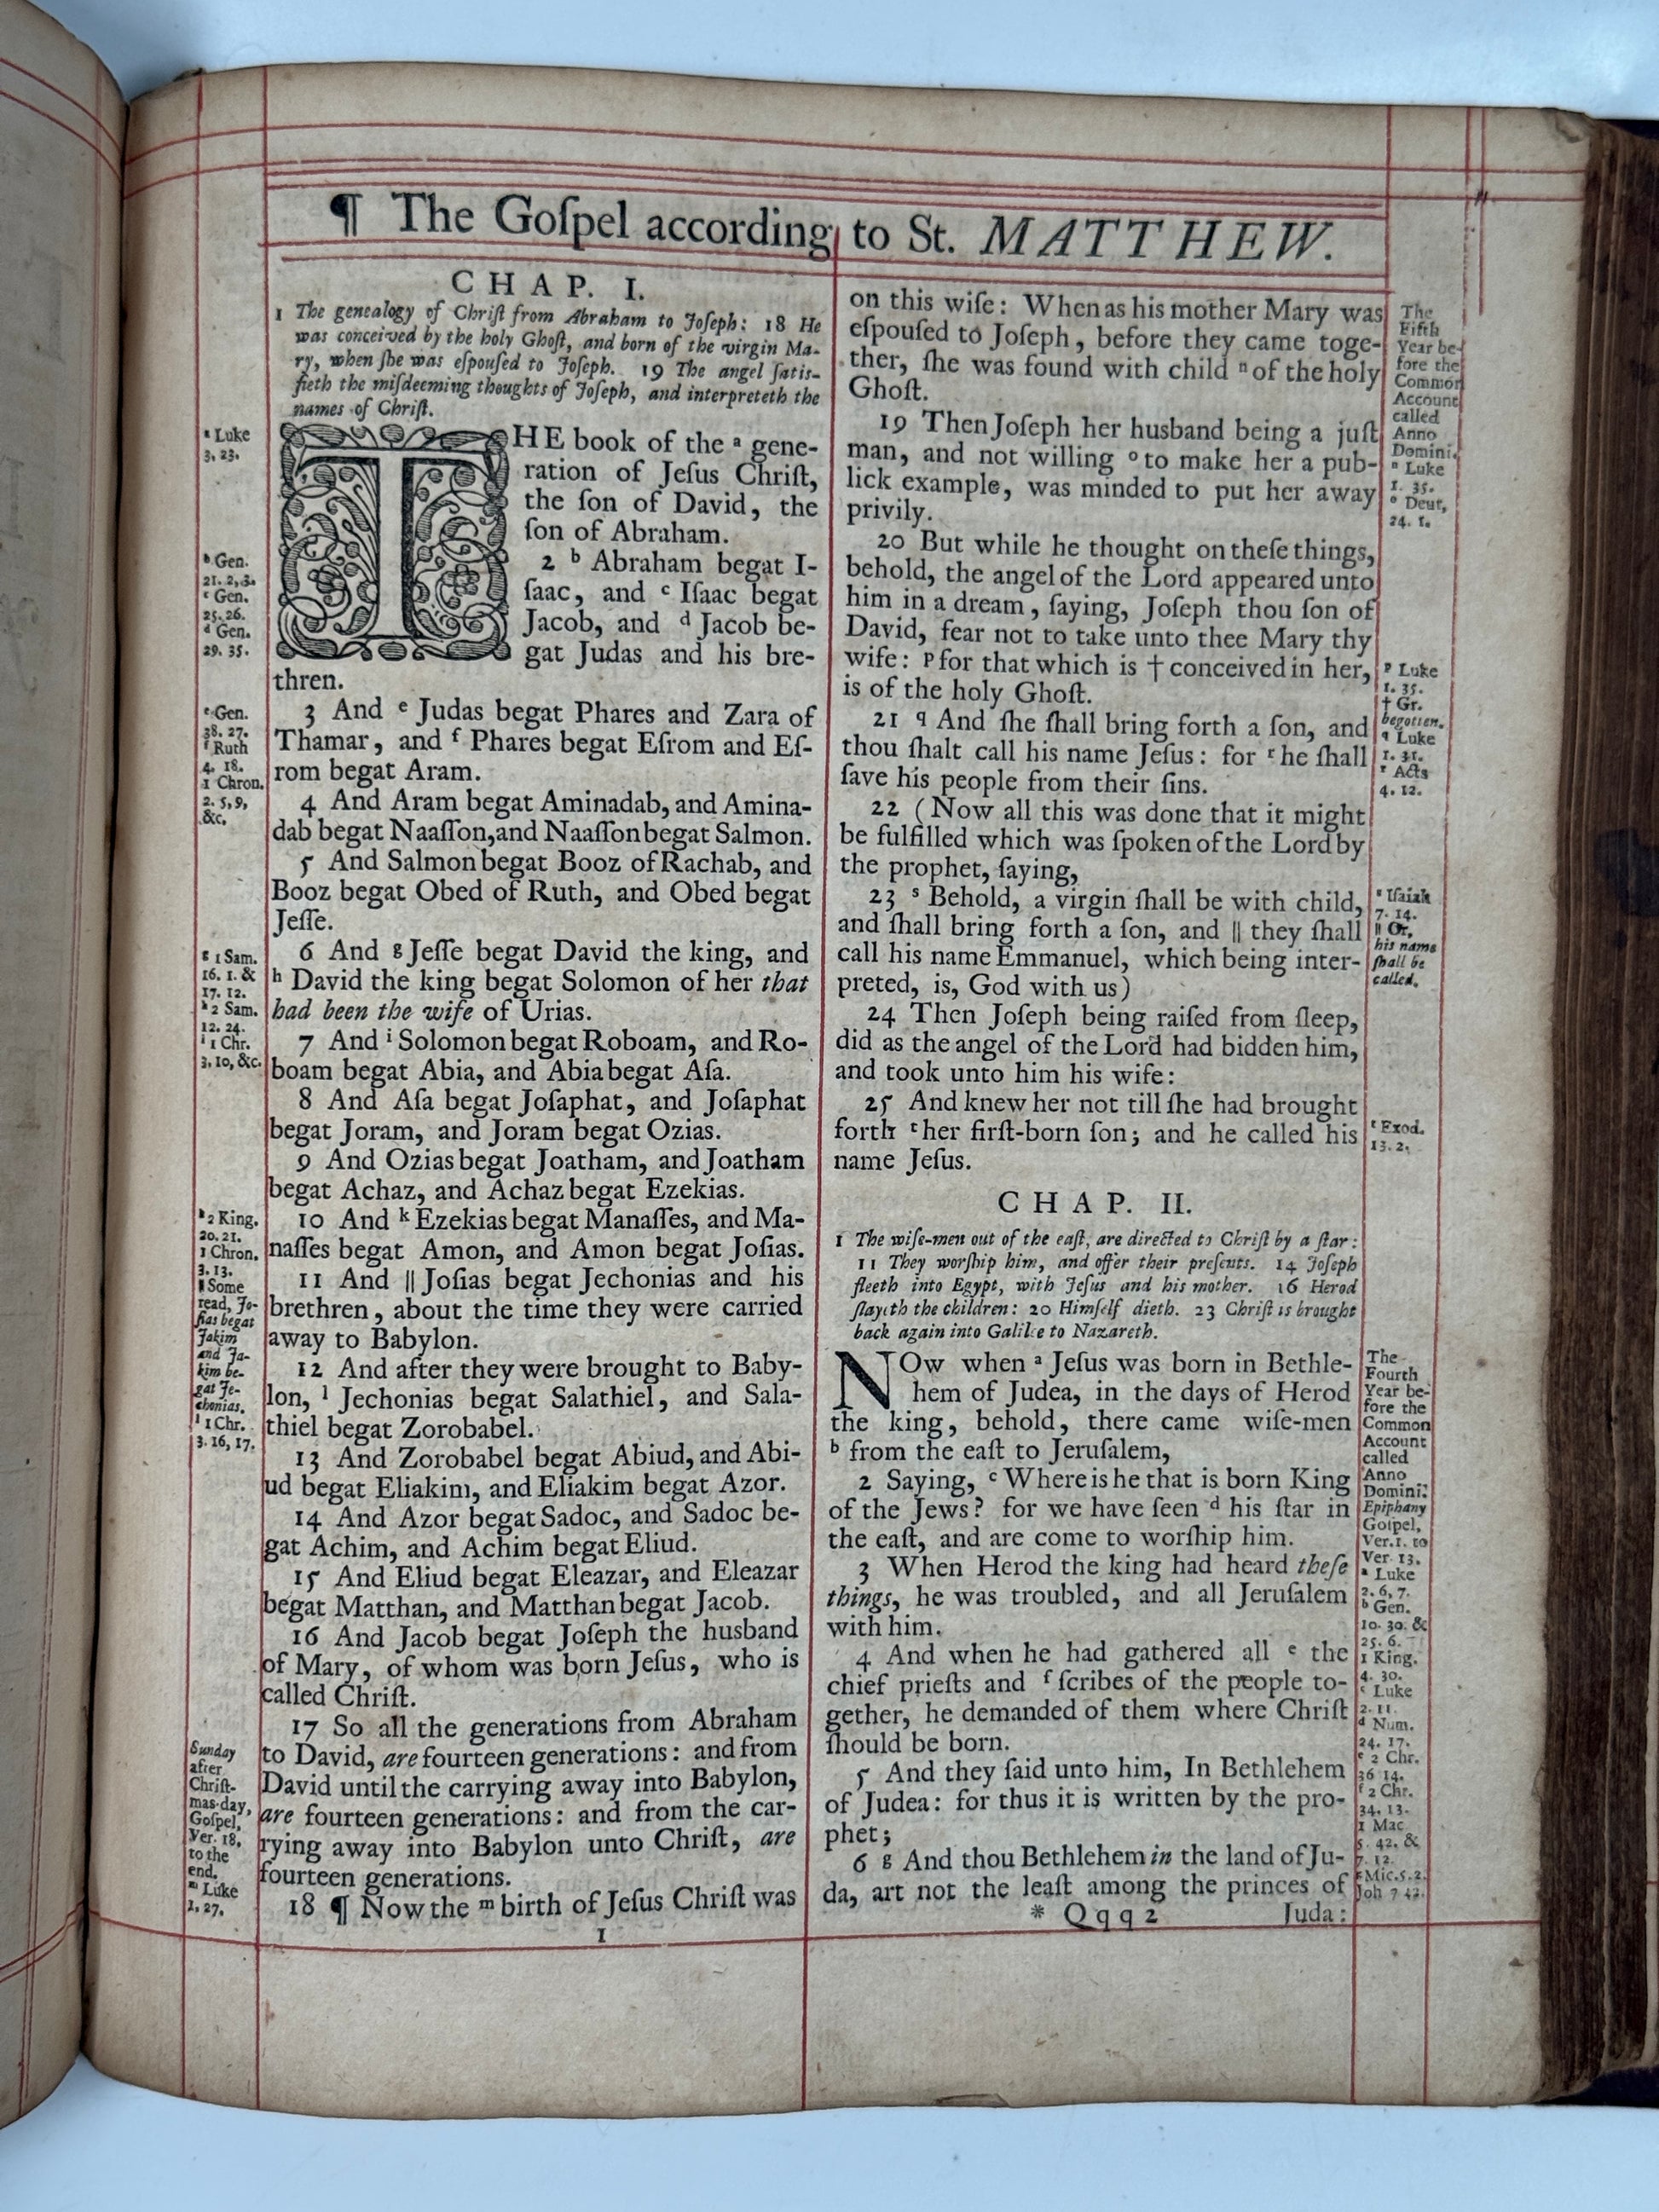 ¶ The Goſpel according to St. MATTHEW.
CHAP. I.
1 The genealogy of Chriſt from Abraham to Joſeph: 18 He
was conceived by the holy Ghoſt, and born of the virgin Ma-
ry, when ſhe was eſpouſed to Joſeph. 19 The angel ſatis-
fieth the miſdeeming thoughts of Joſeph, and interpreteth the
names of Chriſt.
THE book of the ª gene-
ration of Jeſus Chriſt,
the ſon of David, the
ſon of Abraham.
2 ᵇ Abraham begat I-
ſaac, and ᶜ Iſaac begat
Jacob, and ᵈ Jacob be-
gat Judas and his bre-
thren.
3 And ᵉ Judas begat Phares and Zara of
Thamar, and ᶠ Phares begat Eſrom and Eſ-
rom begat Aram.
4 And Aram begat Aminadab, and Amina-
dab begat Naaſſon, and Naaſſon begat Salmon.
5 And Salmon begat Booz of Rachab, and
Booz begat Obed of Ruth, and Obed begat
Jeſſe.
6 And ᵍ Jeſſe begat David the king, and
ʰ David the king begat Solomon of her that
had been the wife of Urias.
7 And ⁱ Solomon begat Roboam, and Ro-
boam begat Abia, and Abia begat Aſa.
8 And Aſa begat Joſaphat, and Joſaphat
begat Joram, and Joram begat Ozias.
9 And Ozias begat Joatham, and Joatham
begat Achaz, and Achaz begat Ezekias.
10 And ᵏ Ezekias begat Manaſſes, and Ma-
naſſes begat Amon, and Amon begat Joſias.
11 And || Joſias begat Jechonias and his
brethren, about the time they were carried
away to Babylon.
12 And after they were brought to Baby-
lon, ˡ Jechonias begat Salathiel, and Sala-
thiel begat Zorobabel.
13 And Zorobabel begat Abiud, and Abi-
ud begat Eliakim, and Eliakim begat Azor.
14 And Azor begat Sadoc, and Sadoc be-
gat Achim, and Achim begat Eliud.
15 And Eliud begat Eleazar, and Eleazar
begat Matthan, and Matthan begat Jacob.
16 And Jacob begat Joſeph the husband
of Mary, of whom was born Jeſus, who is
called Chriſt.
17 So all the generations from Abraham
to David, are fourteen generations: and from
David until the carrying away into Babylon,
are fourteen generations: and from the car-
rying away into Babylon unto Chriſt, are
fourteen generations.
18 ¶ Now the ᵐ birth of Jeſus Chriſt was
1
ª Luke
3. 23.
ᵇ Gen.
21. 2, 3.
ᶜ Gen.
25. 26.
ᵈ Gen.
29. 35.
ᵉ Gen.
38. 27.
ᶠ Ruth
4. 18.
1 Chron.
2. 5, 9,
&c.
ᵍ 1 Sam.
16. 1. &
17. 12.
ʰ 2 Sam.
12. 24.
ⁱ 1 Chr.
3, 10, &c.
ᵏ 2 King.
20. 21.
1 Chron.
3. 13.
|| Some
read, Jo-
ſias begat
Jakim
and Ja-
kim be-
gat Je-
chonias.
ˡ 1 Chr.
3. 16, 17.
Sunday
after
Chriſt-
mas-day,
Goſpel,
Ver. 18,
to the
end.
ᵐ Luke
1. 27.
on this wiſe: When as his mother Mary was
eſpouſed to Joſeph, before they came toge-
ther, ſhe was found with child ⁿ of the holy
Ghoſt.
19 Then Joſeph her husband being a juſt
man, and not willing ᵒ to make her a pub-
lick example, was minded to put her away
privily.
20 But while he thought on theſe things,
behold, the angel of the Lord appeared unto
him in a dream, ſaying, Joſeph thou ſon of
David, fear not to take unto thee Mary thy
wife: ᵖ for that which is † conceived in her,
is of the holy Ghoſt.
21 q And ſhe ſhall bring forth a ſon, and
thou ſhalt call his name Jeſus: for ʳ he ſhall
ſave his people from their ſins.
22 (Now all this was done that it might
be fulfilled which was ſpoken of the Lord by
the prophet, ſaying,
23 ˢ Behold, a virgin ſhall be with child,
and ſhall bring forth a ſon, and || they ſhall
call his name Emmanuel, which being inter-
preted, is, God with us)
24 Then Joſeph being raiſed from ſleep,
did as the angel of the Lord had bidden him,
and took unto him his wife:
25 And knew her not till ſhe had brought
forth ᵗ her firſt-born ſon; and he called his
name Jeſus.
CHAP. II.
1 The wiſe-men out of the eaſt, are directed to Chriſt by a ſtar:
11 They worſhip him, and offer their preſents. 14 Joſeph
fleeth into Egypt, with Jeſus and his mother. 16 Herod
ſlayeth the children: 20 Himſelf dieth. 23 Chriſt is brought
back again into Galilee to Nazareth.
NOw when ª Jeſus was born in Bethle-
hem of Judea, in the days of Herod
the king, behold, there came wiſe-men
ᵇ from the eaſt to Jeruſalem,
2 Saying, ᶜ Where is he that is born King
of the Jews? for we have ſeen ᵈ his ſtar in
the eaſt, and are come to worſhip him.
3 When Herod the king had heard theſe
things, he was troubled, and all Jeruſalem
with him.
4 And when he had gathered all ᵉ the
chief prieſts and ᶠ ſcribes of the people to-
gether, he demanded of them where Chriſt
ſhould be born.
5 And they ſaid unto him, In Bethlehem
of Judea: for thus it is written by the pro-
phet;
6 ᵍ And thou Bethlehem in the land of Ju-
da, art not the leaſt among the princes of
* Qqq2 Juda:
The
Fifth
Year be-
fore the
Common
Account
called
Anno
Domini.
ⁿ Luke
1. 35.
ᵒ Deut.
24. 1.
ᵖ Luke
1. 35.
† Gr.
begotten.
q Luke
1. 31.
ʳ Acts
4. 12.
ˢ Iſaiah
7. 14.
|| Or,
his name
ſhall be
called.
ᵗ Exod.
13. 2.
The
Fourth
Year be-
fore the
Common
Account
called
Anno
Domini.
Epiphany
Goſpel,
Ver. 1. to
Ver 13.
ª Luke
2. 6, 7.
ᵇ Gen.
10. 30. &
25. 6.
1 King.
4. 30.
ᶜ Luke
2. 11.
ᵈ Num.
24. 17.
ᵉ 2 Chr.
36 14.
ᶠ 2 Chr.
34. 13.
1 Mac
5. 42. &
7. 12.
ᵍ Mic. 5. 2.
Joh 7 42.